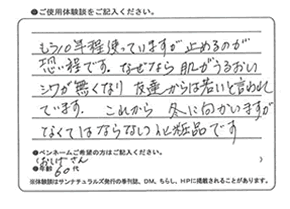 ●ご使用体験談をご記入ください。
もう10年程使っていますが止めるのが
恐い程です。なぜなら肌がうるおい
シワが無くなり 友達からは若いと言われ
ています。これから 冬に向かいますが
なくてはならない化粧品です
●ペンネームご希望の方はご記入ください。
( おしげさん )
●年齢 60代
※体験談はサンナチュラルズ発行の季刊誌、DM、ちらし、HPに掲載されることがあります。